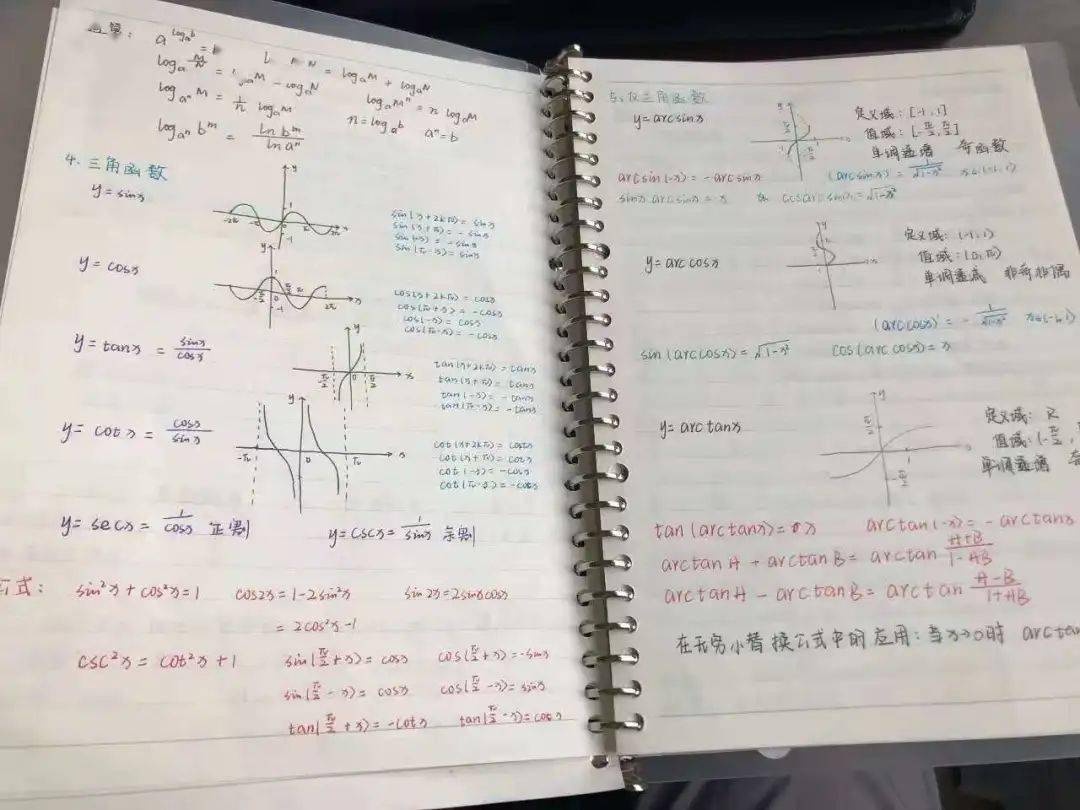 a^{log_a b} =
log_a M/N = log_a M - log_a N
N = log_a M + log_a N
log_{a^n} M = 1/n log_a M
log_a M^n = n log_a M
log_{a^n} b^m = ln b^m / ln a^n
n = log_a b  a^n = b
4. 三角函数
y = sinx
y
1
-1
-2π
π
2π
x
sin(x+2kπ) = sinx
sin(x+π) = -sinx
sin(-x) = -sinx
sin(π-x) = sinx
y = cosx
y
1
-1
2π
x
cos(x+2kπ) = cosx
cos(x+π) = -cosx
cos(-x) = cosx
cos(π-x) = -cosx
y = tanx = sinx/cosx
y
π/2
0
π/2
x
tan(x+2kπ) = tanx
tan(x+π) = tanx
tan(-x) = -tanx
tan(π-x) = -tanx
y = cotx = cosx/sinx
y
-π
0
π
x
cot(x+2kπ) = cotx
cot(x+π) = cotx
cot(-x) = -cotx
cot(π-x) = -cotx
y = secx = 1/cosx 正割
y = cscx = 1/sinx 余割
公式: sin²x + cos²x = 1  cos2x = 1-2sin²x  sin2x = 2sinxcosx
= 2cos²x-1
csc²x = cot²x + 1  sin(π/2+x) = cosx  cos(π/2+x) = -sinx
sin(π/2-x) = cosx  cos(π/2-x) = sinx
tan(π/2+x) = -cotx  tan(π/2-x) = cotx
5. 反三角函数
y = arcsinx
定义域: [-1,1]
值域: [-π/2, π/2]
单调递增 奇函数
arcsin(-x) = -arcsinx
(arcsinx)' = 1/√1-x²  x∈(-1,1)
sin(arcsinx) = x  cos(arcsinx) = √1-x²
y = arccosx
定义域: (-1,1)
值域: (0,π)
单调递减 非奇非偶
(arccosx)' = - 1/√1-x²
sin(arccosx) = √1-x²  cos(arccosx) = x
y = arctanx
定义域: R
值域: (-π/2,
单调递增 奇
tan(arctanx) = x  arctan(-x) = -arctanx
arctanA + arctanB = arctan A+B/1-AB
arctanA - arctanB = arctan A-B/1+AB
在无穷小替换公式中的应用: 当x→0时 arctan